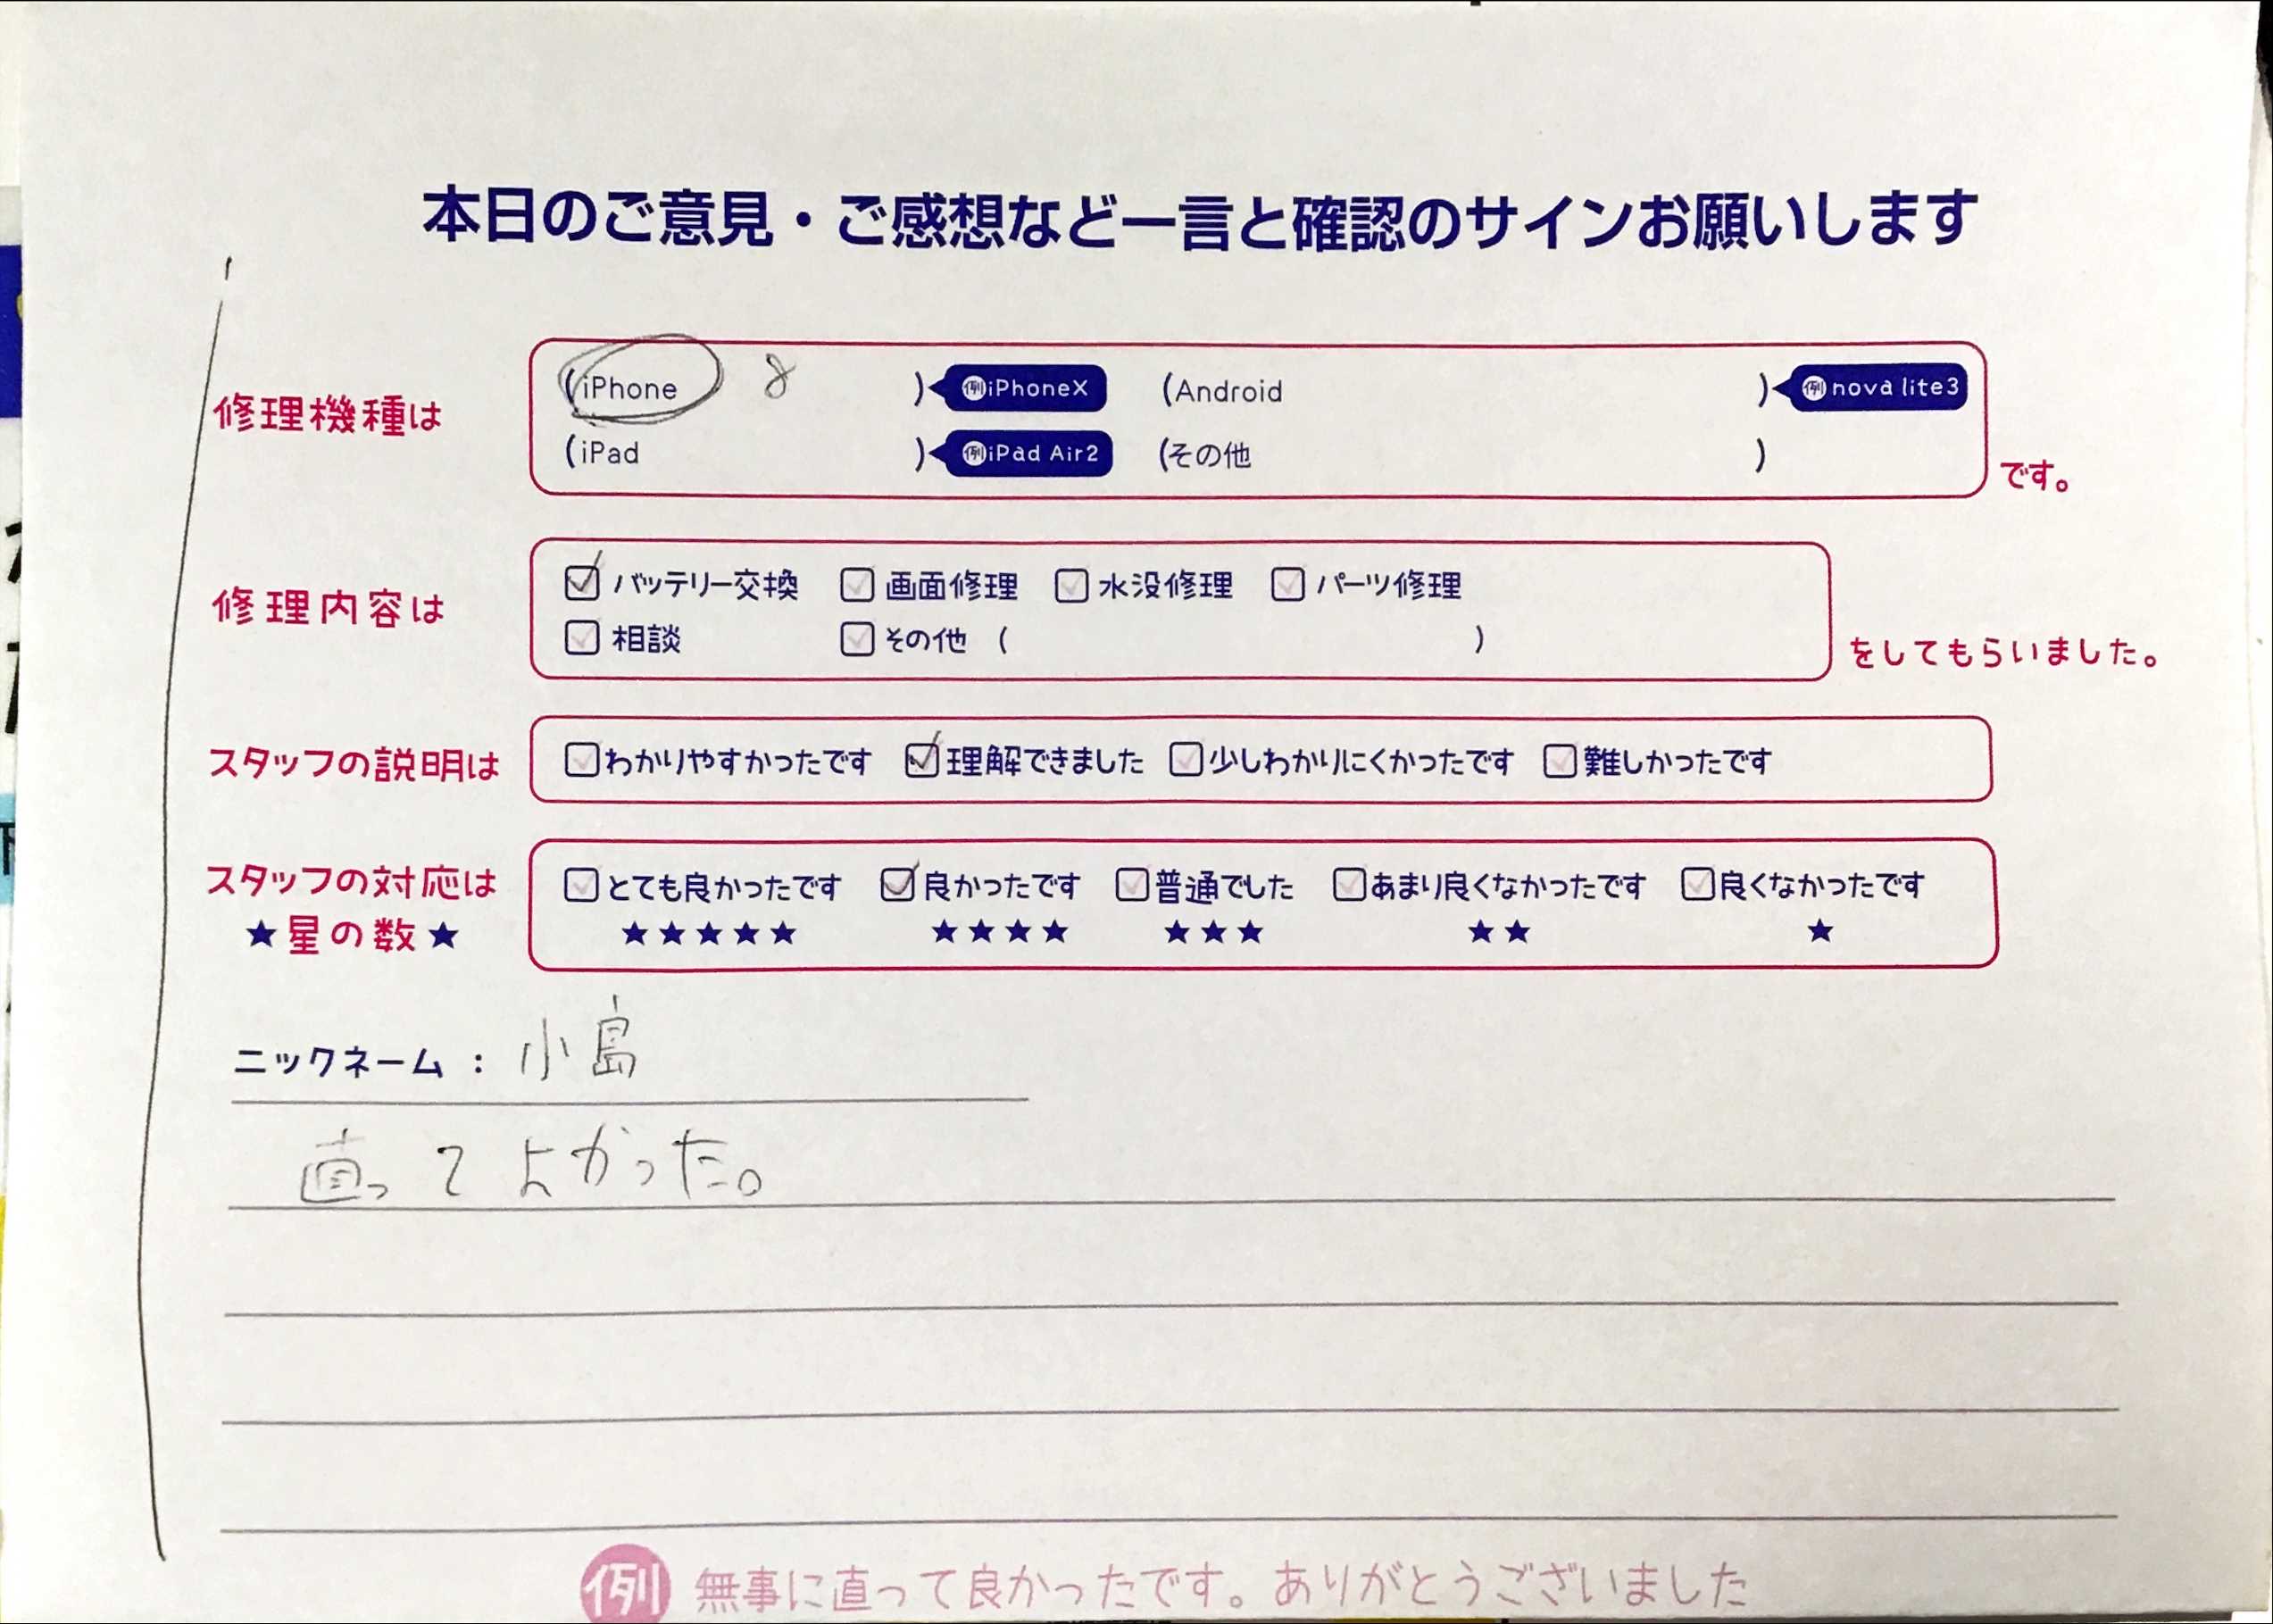 本日のご意見・ご感想など一言と確認のサインお願いします
修理機種は
(iPhone 8 ) 例iPhoneX (Android ) 例nova lite3
(iPad ) 例iPad Air2 (その他 )
です。
修理内容は
バッテリー交換 画面修理 水没修理 パーツ修理
相談 その他 ( )
をしてもらいました。
スタッフの説明は
わかりやすかったです 理解できました 少しわかりにくかったです 難しかったです
スタッフの対応は
★星の数★
とても良かったです 良かったです 普通でした あまり良くなかったです 良くなかったです
★★★★★ ★★★★ ★★★ ★★ ★
ニックネーム : 小島
直ってよかった。
例 無事に直って良かったです。ありがとうございました